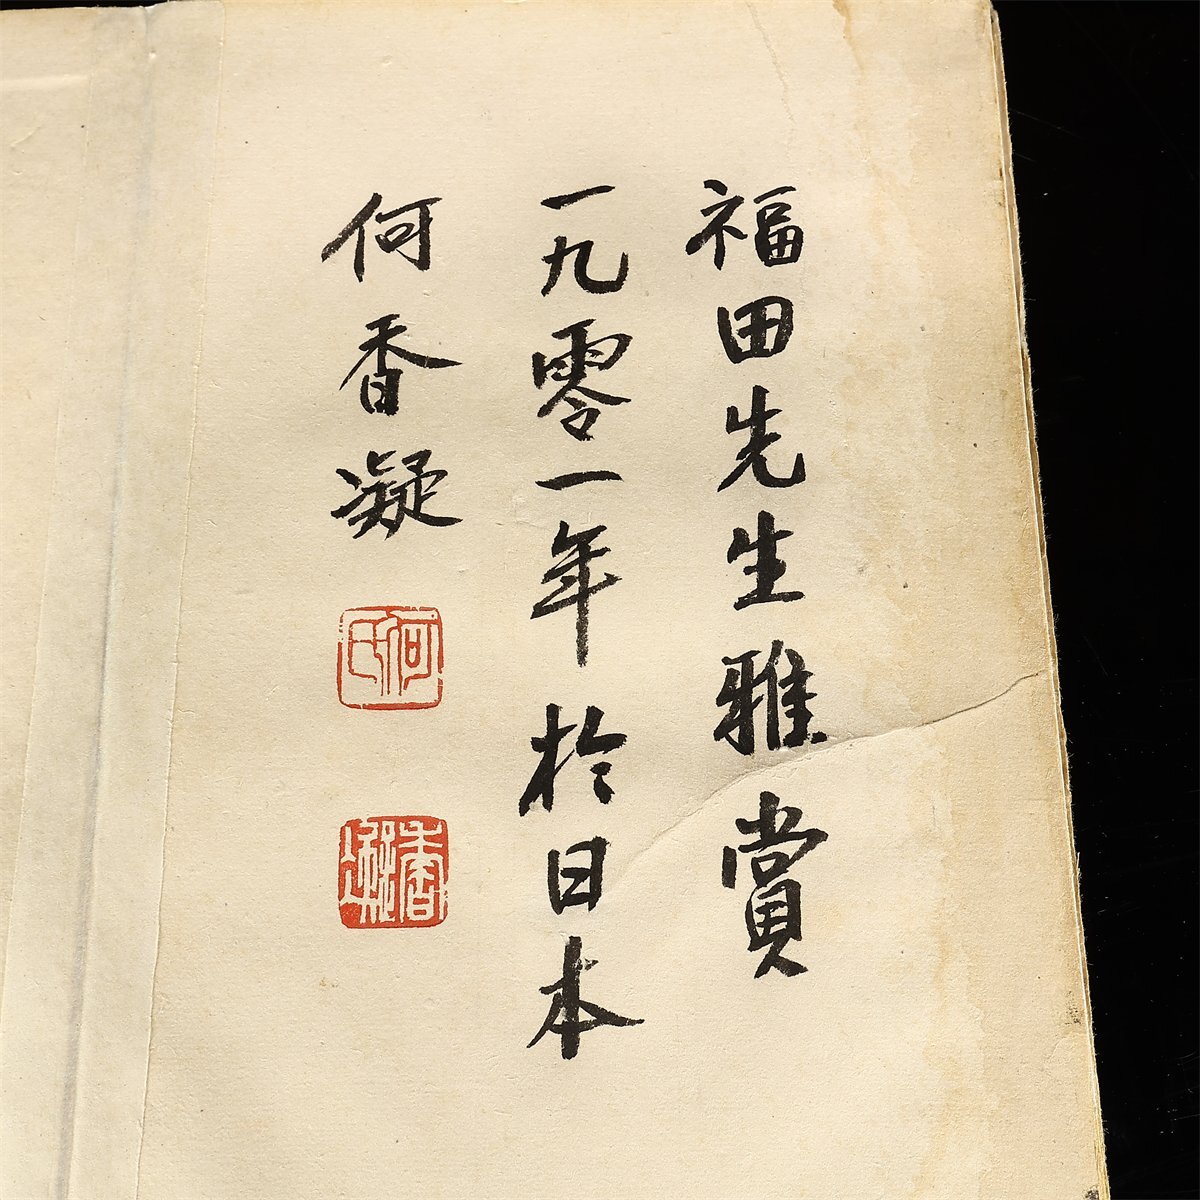 福田先生雅赏
一九零一年於日本
何香凝
何氏
香凝